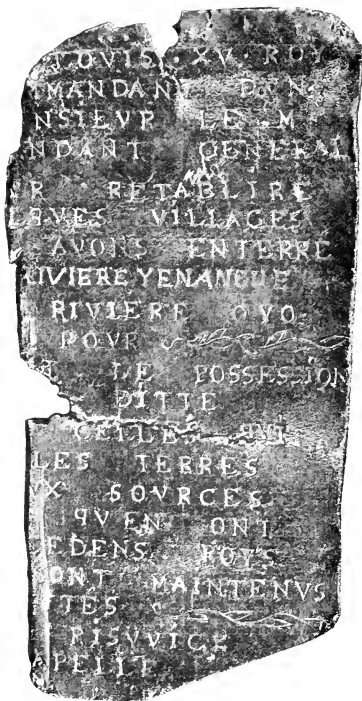 LOVIS · XV · ROY
MANDANT DVN
NSIEVR LE M
NDANT GENERAL
R RETABLIRE
VES VILLAGES
AVONS ENTERRE
RIVIERE YENANGUE
RIVIERE OYO
POVR
DE POSSESSION
DITTE
CELLES
LES TERRES
VX SOVRCES
QVEN ONT
EDENS ROYS
ONT MAINTENVS
TES
RISVVICK